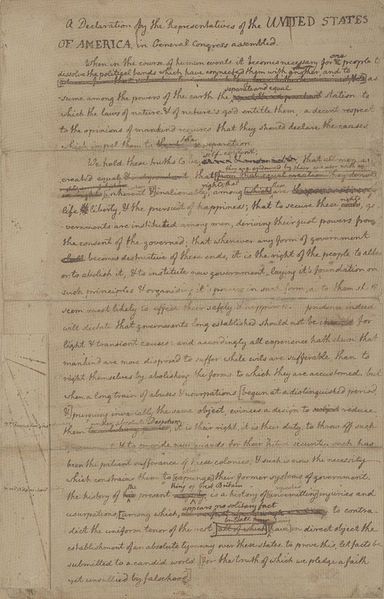 A Declaration by the Representatives of the UNITED STATES
OF AMERICA, in General Congress assembled.
When in the course of human events it becomes necessary for one people to
dissolve the political bands which have connected them with another, and to
assume among the powers of the earth the separate and equal station to
which the laws of nature & of nature's god entitle them, a decent respect
to the opinions of mankind requires that they should declare the causes
which impel them to the separation.
We hold these truths to be self-evident, that all men are
created equal, that they are endowed by their creator with
rights; that among these are
life, liberty, & the pursuit of happiness; that to secure these rights, go-
vernments are instituted among men, deriving their just powers from
the consent of the governed; that whenever any form of government
becomes destructive of these ends, it is the right of the people to alter
or to abolish it, & to institute new government, laying it's foundation on
such principles & organising it's powers in such form, as to them shall
seem most likely to effect their safety & happiness. prudence indeed
will dictate that governments long established should not be changed for
light & transient causes: and accordingly all experience hath shewn that
mankind are more disposed to suffer while evils are sufferable, than to
right themselves by abolishing the forms to which they are accustomed. but
when a long train of abuses & usurpations [begun at a distinguished period,
& pursuing invariably the same object, evinces a design to reduce
them under absolute Despotism, it is their right, it is their duty, to throw off such
& to provide new guards for their future security. such has
been the patient sufferance of these colonies; & such is now the necessity
which constrains them to [expunge] their former systems of government.
the history of the present King of Great Britain is a history of [unremitting] injuries and
usurpations, [among which appears no solitary fact to contra-
dict the uniform tenor of the rest have in direct object the
establishment of an absolute tyranny over these states. to prove this, let facts be
submitted to a candid world, [for the truth of which we pledge a faith
yet unsullied by falsehood]